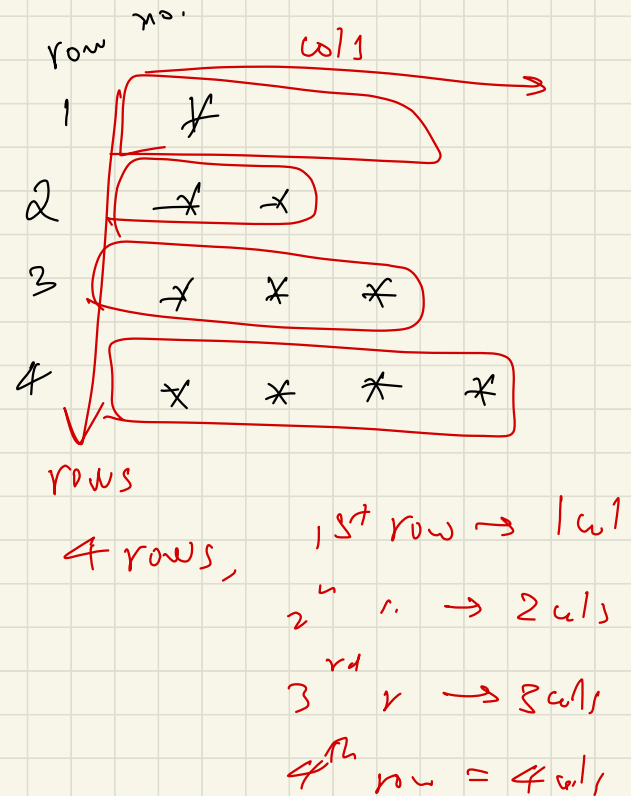 row no.
cols
1 *
2 * *
3 * * *
4 * * * *
rows
4 rows, 1st row → 1 col
2n ". → 2 cols
3rd r → 3 cols
4th row = 4 cols